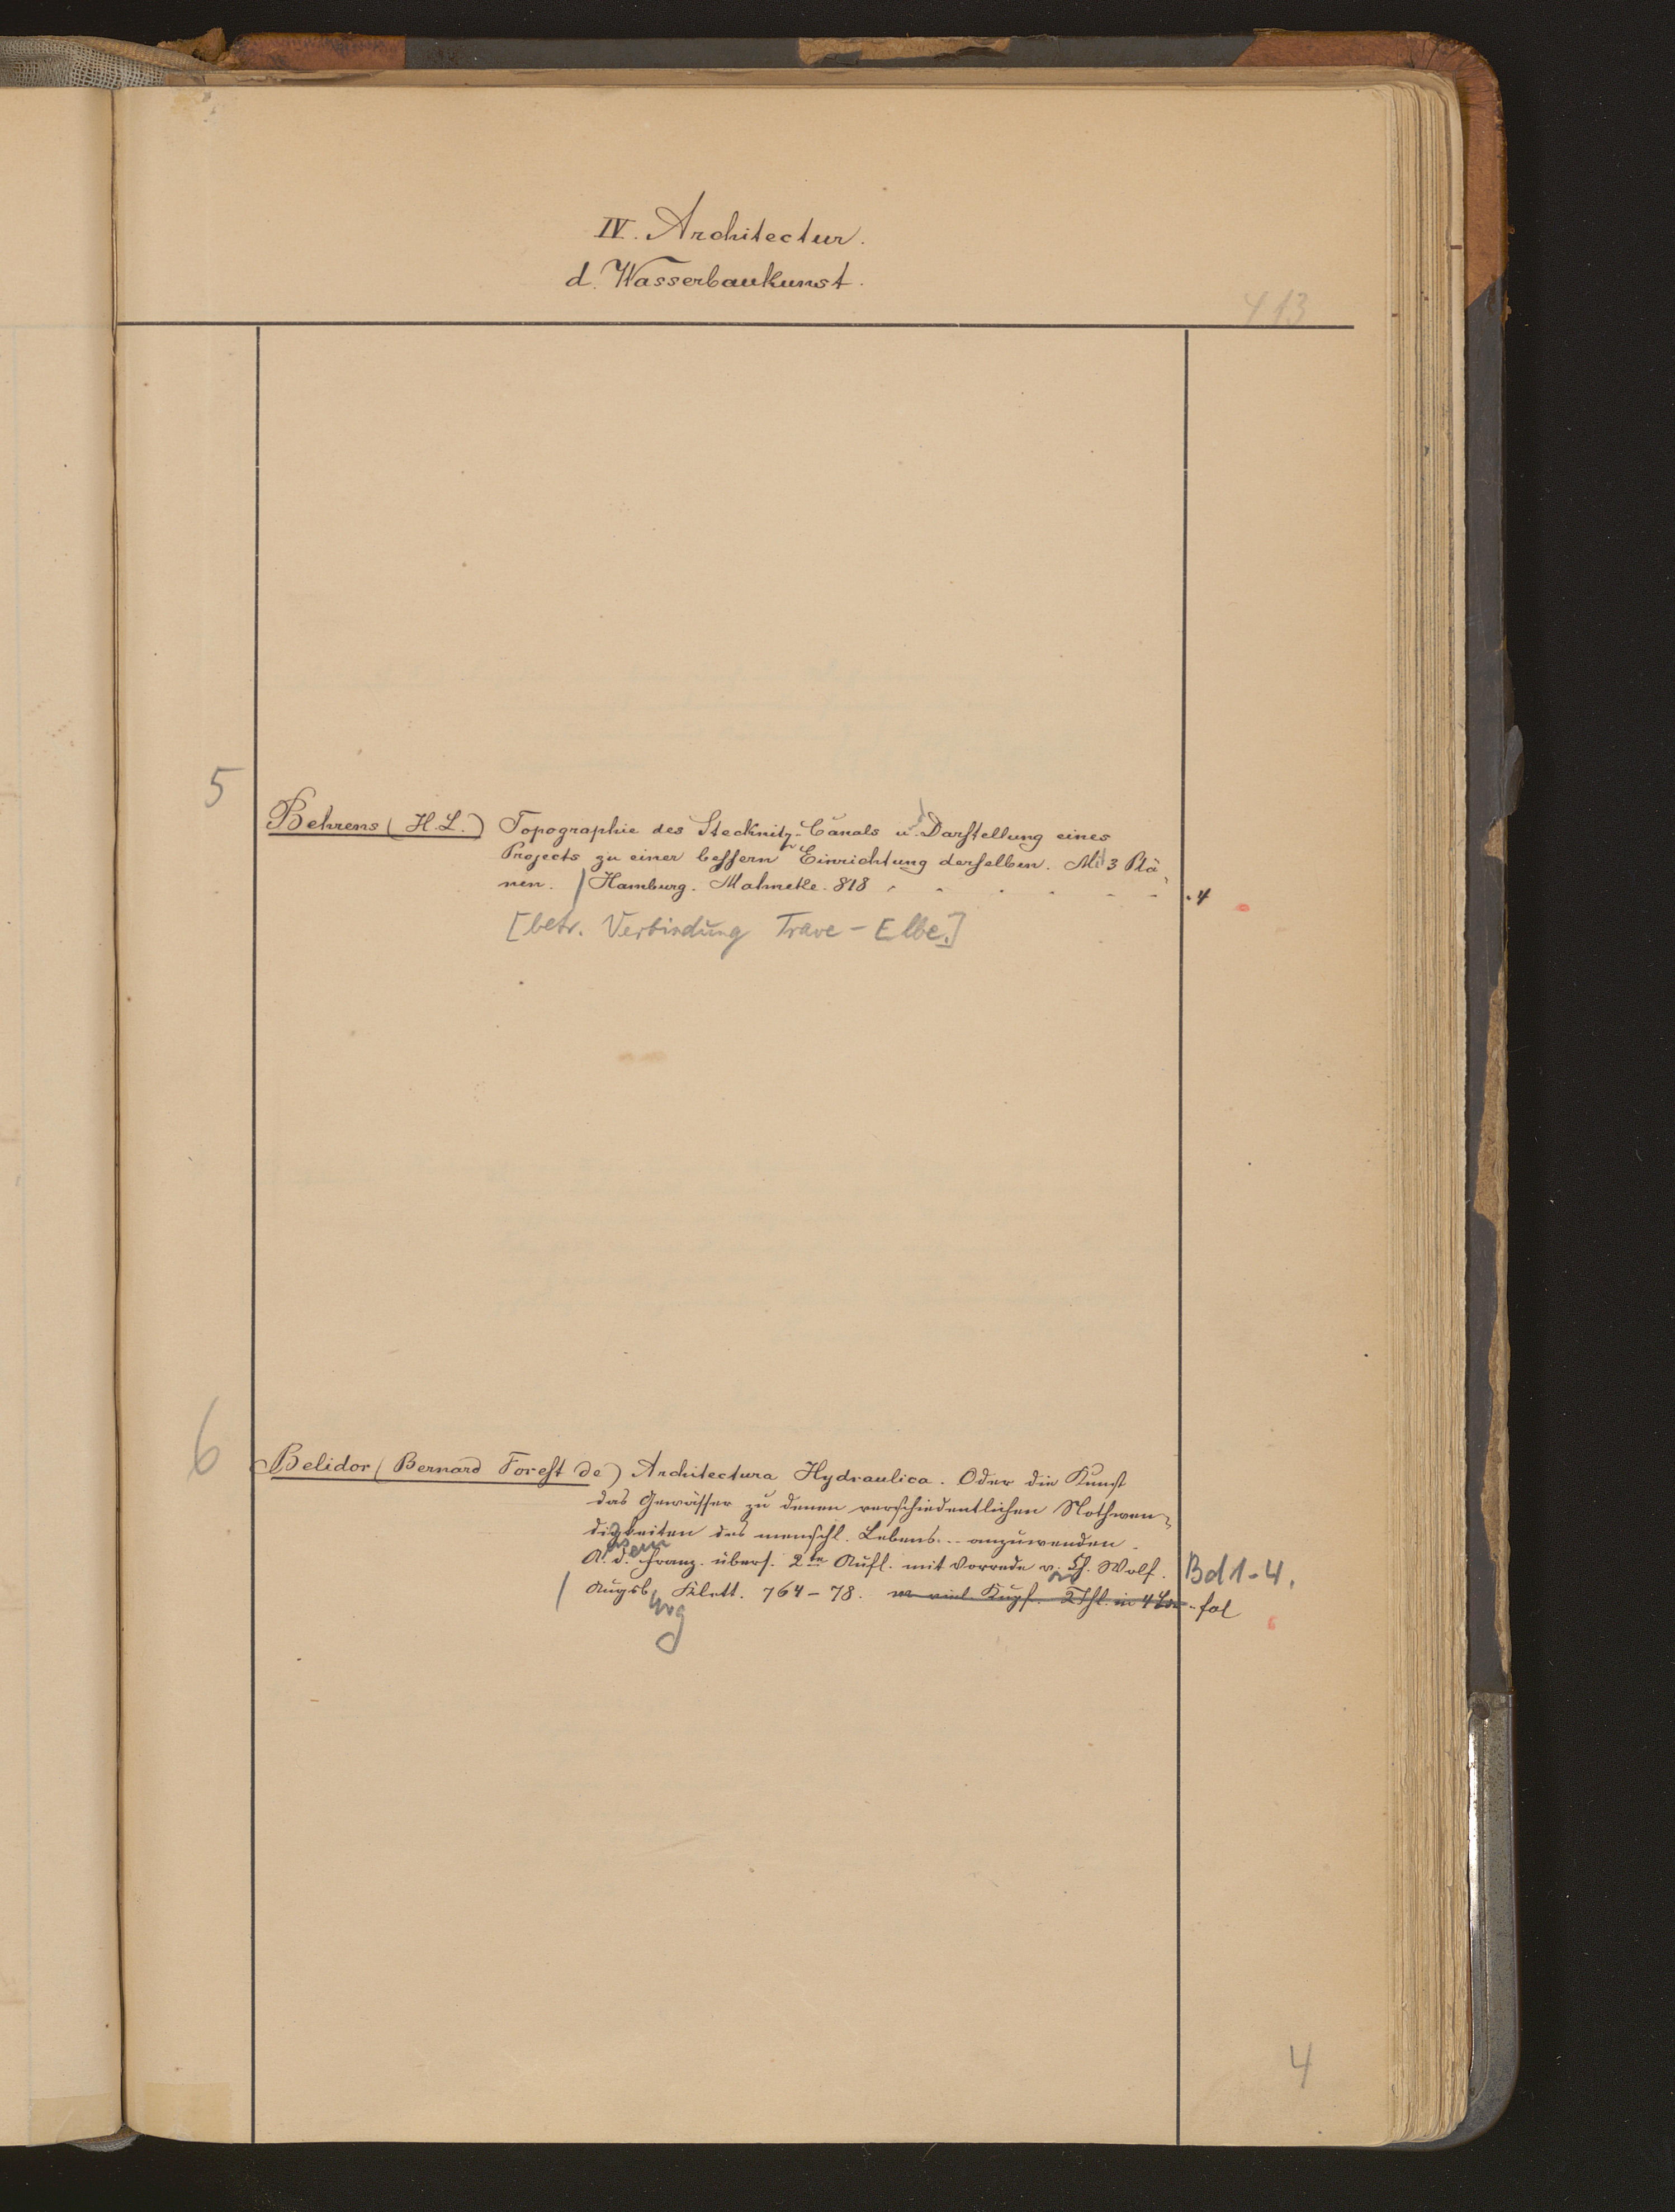 IV. Architectur.
d. Wasserbaukunst.
413
5
Behrens (H. L.) Topographie des Stecknitz-Canals u. Darstellung eines
Projects zu einer bessern Einrichtung derselben. Mit 3 Plä-
nen. Hamburg. Mahncke. 818 . 4
[betr. Verbindung Trave - Elbe.]
6
Belidor (Bernard Forest de) Architectura Hydraulica. Oder die Kunst
das Gewässer zu denen verschiedentlichen Nothwen-
digkeiten des menschl. Lebens... anzuwenden.
Aus dem Franz. übers. 2te Aufl. mit Vorrede v. Ch. Wolf. Bd 1-4.
Augsburg Klett. 764-78. m viel Kupf. 2 Thl. in 4 fol
6
4